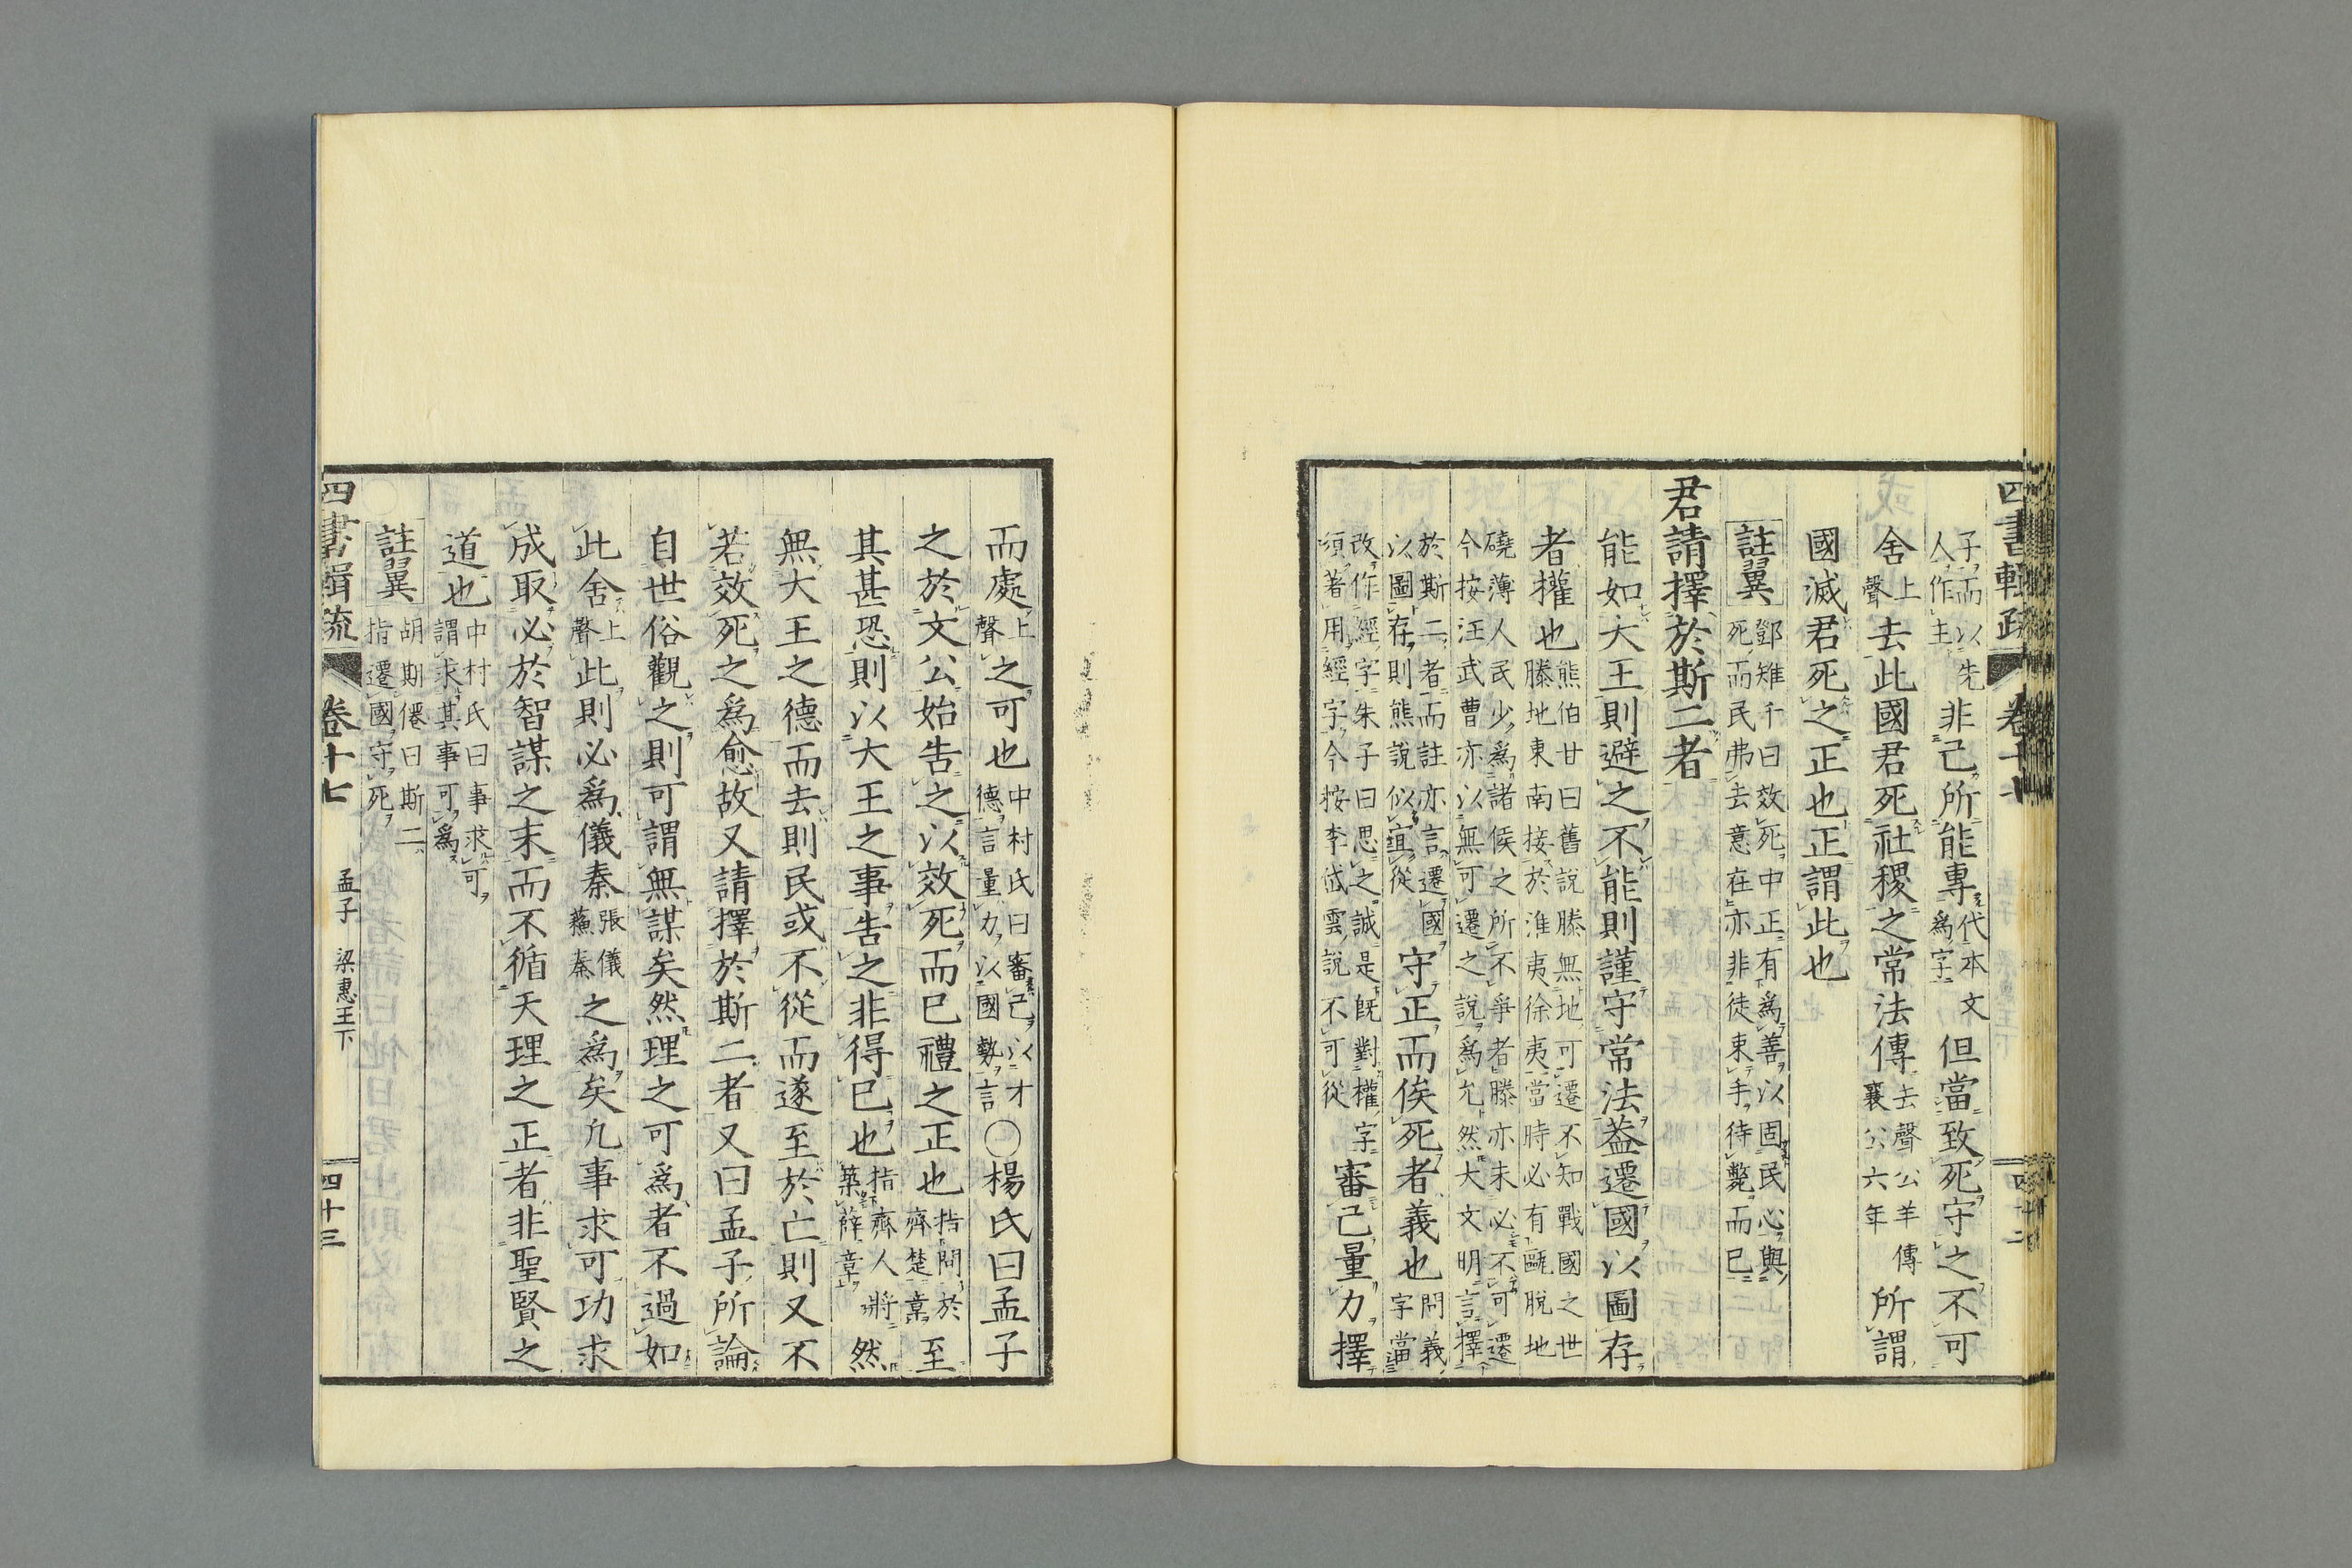 四書輯疏　卷十七　四十二
子而以先
人作主
非己所能專
代本文
爲字
但當致死守之不可
舍
上
聲
去此國君死社稷之常法傳
去聲公羊傳
襄公六年
所謂
國滅君死之正也正謂此也
註翼
鄧雉千曰效死中正有爲善以固民心與
死而民弗去意在亦非徒束手待斃而已
君請擇於斯二者
能如大王則避之不能則謹守常法葢遷國以圖存
者權也
熊伯甘曰舊說滕無地可遷不知戰國之世
滕地東南接於淮夷徐夷當時必有甌脫地
磽薄人民少爲諸侯之所不爭者滕亦未必不可遷
今按汪武曹亦以無可遷之說爲尤然大文明言擇
於斯二者而註亦言遷國
以圖存則熊說似宜從
守正而俟死者義也
問義
字當
改作經字朱子曰思之誠是旣對權字
須著用經字今按李岱雲說不可從
審己量力擇
而處
上
聲
之可也
中村氏曰審己以才
德言量力以國勢言
〇楊氏曰孟子
之於文公始告之以效死而已禮之正也
指問於
齊楚章
至
其甚恐則以大王之事告之非得已也
指齊人將
築薛章
然
無大王之德而去則民或不從而遂至於亡則又不
若效死之爲愈故又請擇於斯二者又曰孟子所論
自世俗觀之則可謂無謀矣然理之可爲者不過如
此舍
上
聲
此則必爲儀秦
張儀
蘇秦
之爲矣凢事求可功求
成取必於智謀之末而不循天理之正者非聖賢之
道也
中村氏曰事求可
謂求其事可爲
註翼
胡期僊曰斯二
指遷國守死
四書輯疏　卷十七　孟子　梁惠王下　四十三